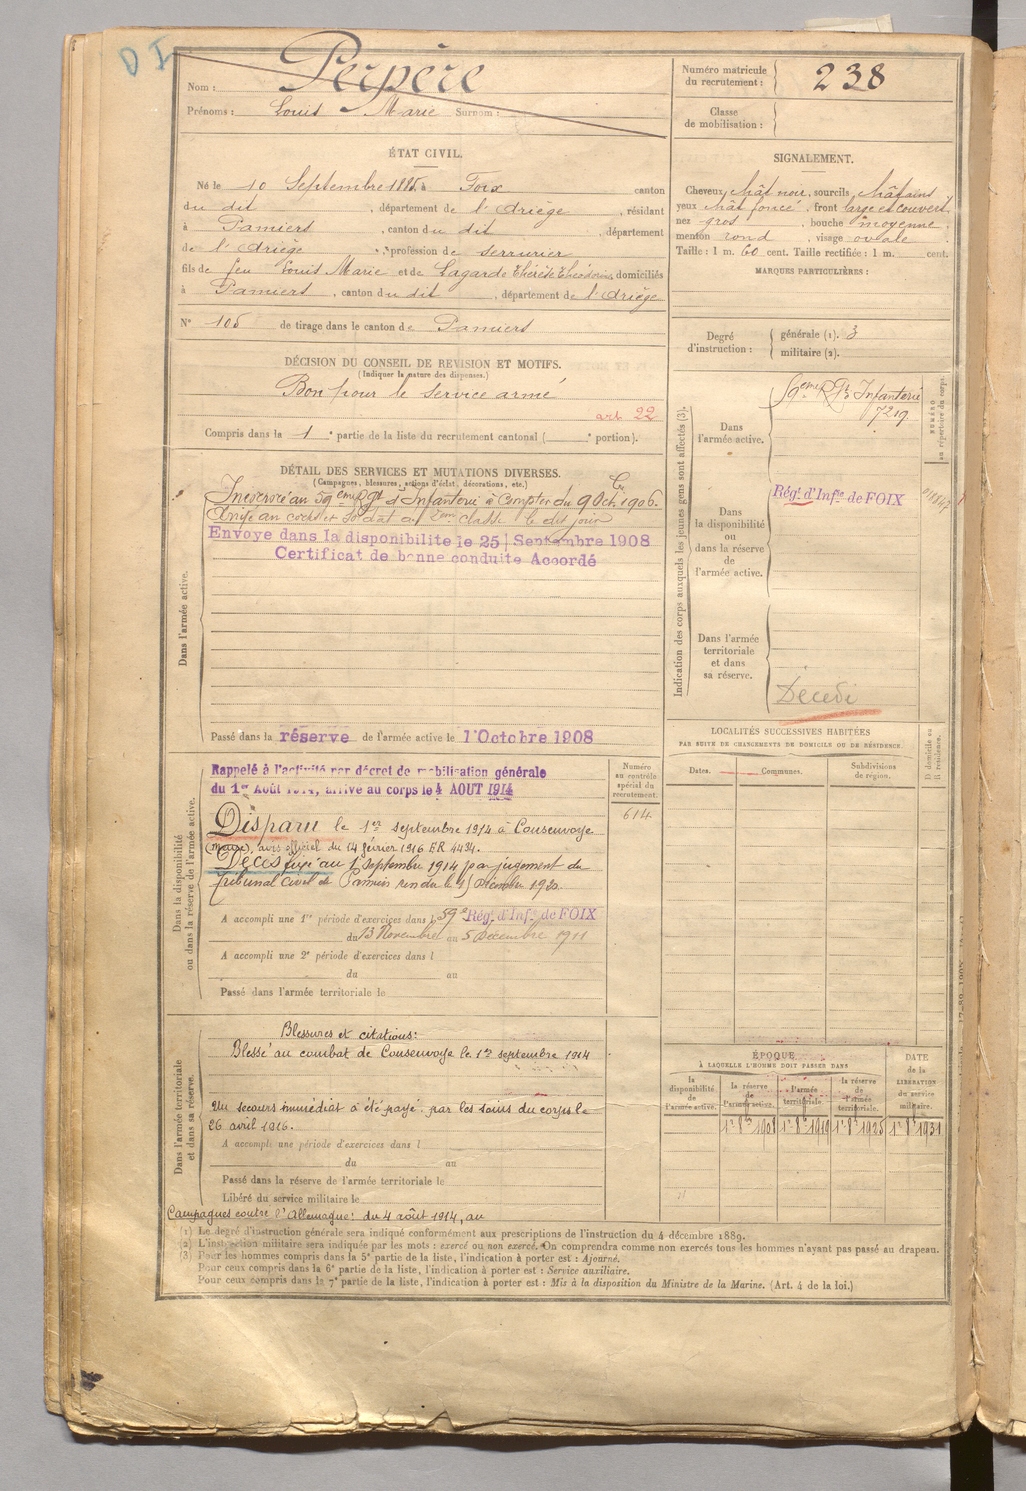 D I
Nom : Perpère
Prénoms : Louis Marie Surnom :
Numéro matricule du recrutement : 238
Classe de mobilisation :
ÉTAT CIVIL.
Né le 10 Septembre 1885 à Foix canton
du dit , département de l'Ariège , résidant
à Pamiers , canton du dit , département
de l'Ariège , profession de serrurier
fils de feu Louis Marie et de Lagarde Thérèse Théodorine, domiciliés
à Pamiers , canton du dit , département de l'Ariège
N° 105 de tirage dans le canton de Pamiers
SIGNALEMENT.
Cheveux chât noir, sourcils châtains
yeux chât foncé , front large et couvert,
nez gros , bouche moyenne
menton rond , visage ovale
Taille : 1 m. 60 cent. Taille rectifiée : 1 m. cent.
MARQUES PARTICULIÈRES :
Degré d'instruction : générale (1). 3
militaire (2).
DÉCISION DU CONSEIL DE REVISION ET MOTIFS.
(Indiquer la nature des dispenses.)
Bon pour le service armé
art 22
Compris dans la 1e partie de la liste du recrutement cantonal ( e portion).
DÉTAIL DES SERVICES ET MUTATIONS DIVERSES.
(Campagnes, blessures, actions d'éclat, décorations, etc.)
Dans l'armée active.
Incorporé au 59eme Rgt d'Infanterie à compter du 9 Oct. 1906.
Arrivé au corps et soldat de 2eme classe le dit jour
Envoye dans la disponibilite le 25 Septembre 1908
Certificat de bonne conduite Accordé
Passé dans la réserve de l'armée active le 1 Octobre 1908
Indication des corps auxquels les jeunes gens sont affectés (3).
NUMÉRO au répertoire du corps.
Dans l'armée active.
59eme Rgt Infanterie
7219
Dans la disponibilité ou dans la réserve de l'armée active.
Régt d'Infie de FOIX
Dans l'armée territoriale et dans sa réserve.
Décédé
LOCALITÉS SUCCESSIVES HABITÉES
PAR SUITE DE CHANGEMENTS DE DOMICILE OU DE RÉSIDENCE.
Dates. Communes. Subdivisions de région. D domicile ou R résidence.
Dans la disponibilité ou dans la réserve de l'armée active.
Rappelé à l'activité par décret de mobilisation générale
du 1er Août 1914, arrivé au corps le 4 AOUT 1914
Numéro au contrôle spécial du recrutement.
614
Disparu le 1er septembre 1914 à Consenvoye
(Meuse), avis officiel du 14 février 1916 ER 4434.
Décès fixé au 1 septembre 1914 par jugement du
Tribunal civil de Pamiers rendu le décembre 1920.
A accompli une 1re période d'exercices dans l 59e Régt d'Infie de FOIX
du 13 Novembre au 5 Décembre 1911
A accompli une 2e période d'exercices dans l
du au
Passé dans l'armée territoriale le
Dans l'armée territoriale et dans sa réserve.
Blessures et citations :
Blessé au combat de Consenvoye le 1er septembre 1914
Un secours immédiat a été payé par les soins du corps le
26 avril 1916.
A accompli une période d'exercices dans l
du au
Passé dans la réserve de l'armée territoriale le
Libéré du service militaire le
Campagnes contre l'Allemagne : du 4 août 1914, au
ÉPOQUE
À LAQUELLE L'HOMME DOIT PASSER DANS
la disponibilité de l'armée active.
la réserve de l'armée active.
l'armée territoriale.
la réserve de l'armée territoriale.
DATE de la LIBÉRATION du service militaire.
1er 8bre 1908 1er 8bre 1919 1er 8bre 1925 1er 8bre 1931
(1) Le degré d'instruction générale sera indiqué conformément aux prescriptions de l'instruction du 4 décembre 1889.
(2) L'instruction militaire sera indiquée par les mots : exercé ou non exercé. On comprendra comme non exercés tous les hommes n'ayant pas passé au drapeau.
(3) Pour les hommes compris dans la 5e partie de la liste, l'indication à porter est : Ajourné.
Pour ceux compris dans la 6e partie de la liste, l'indication à porter est : Service auxiliaire.
Pour ceux compris dans la 7e partie de la liste, l'indication à porter est : Mis à la disposition du Ministre de la Marine. (Art. 4 de la loi.)